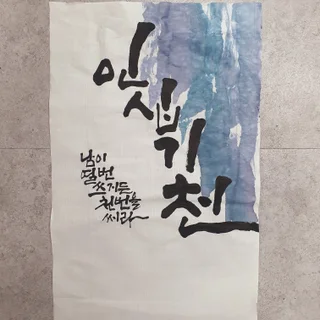 인십기천
남이
열번
쓰거든
천번을
써라